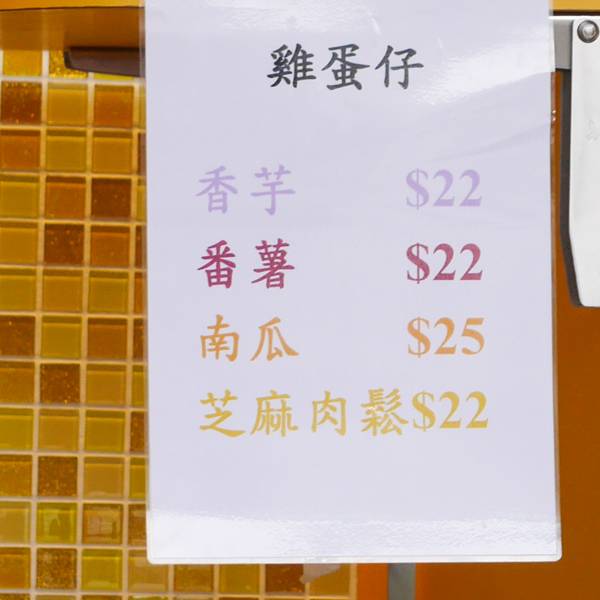 雞蛋仔
香芋 $22
番薯 $22
南瓜 $25
芝麻肉鬆$22